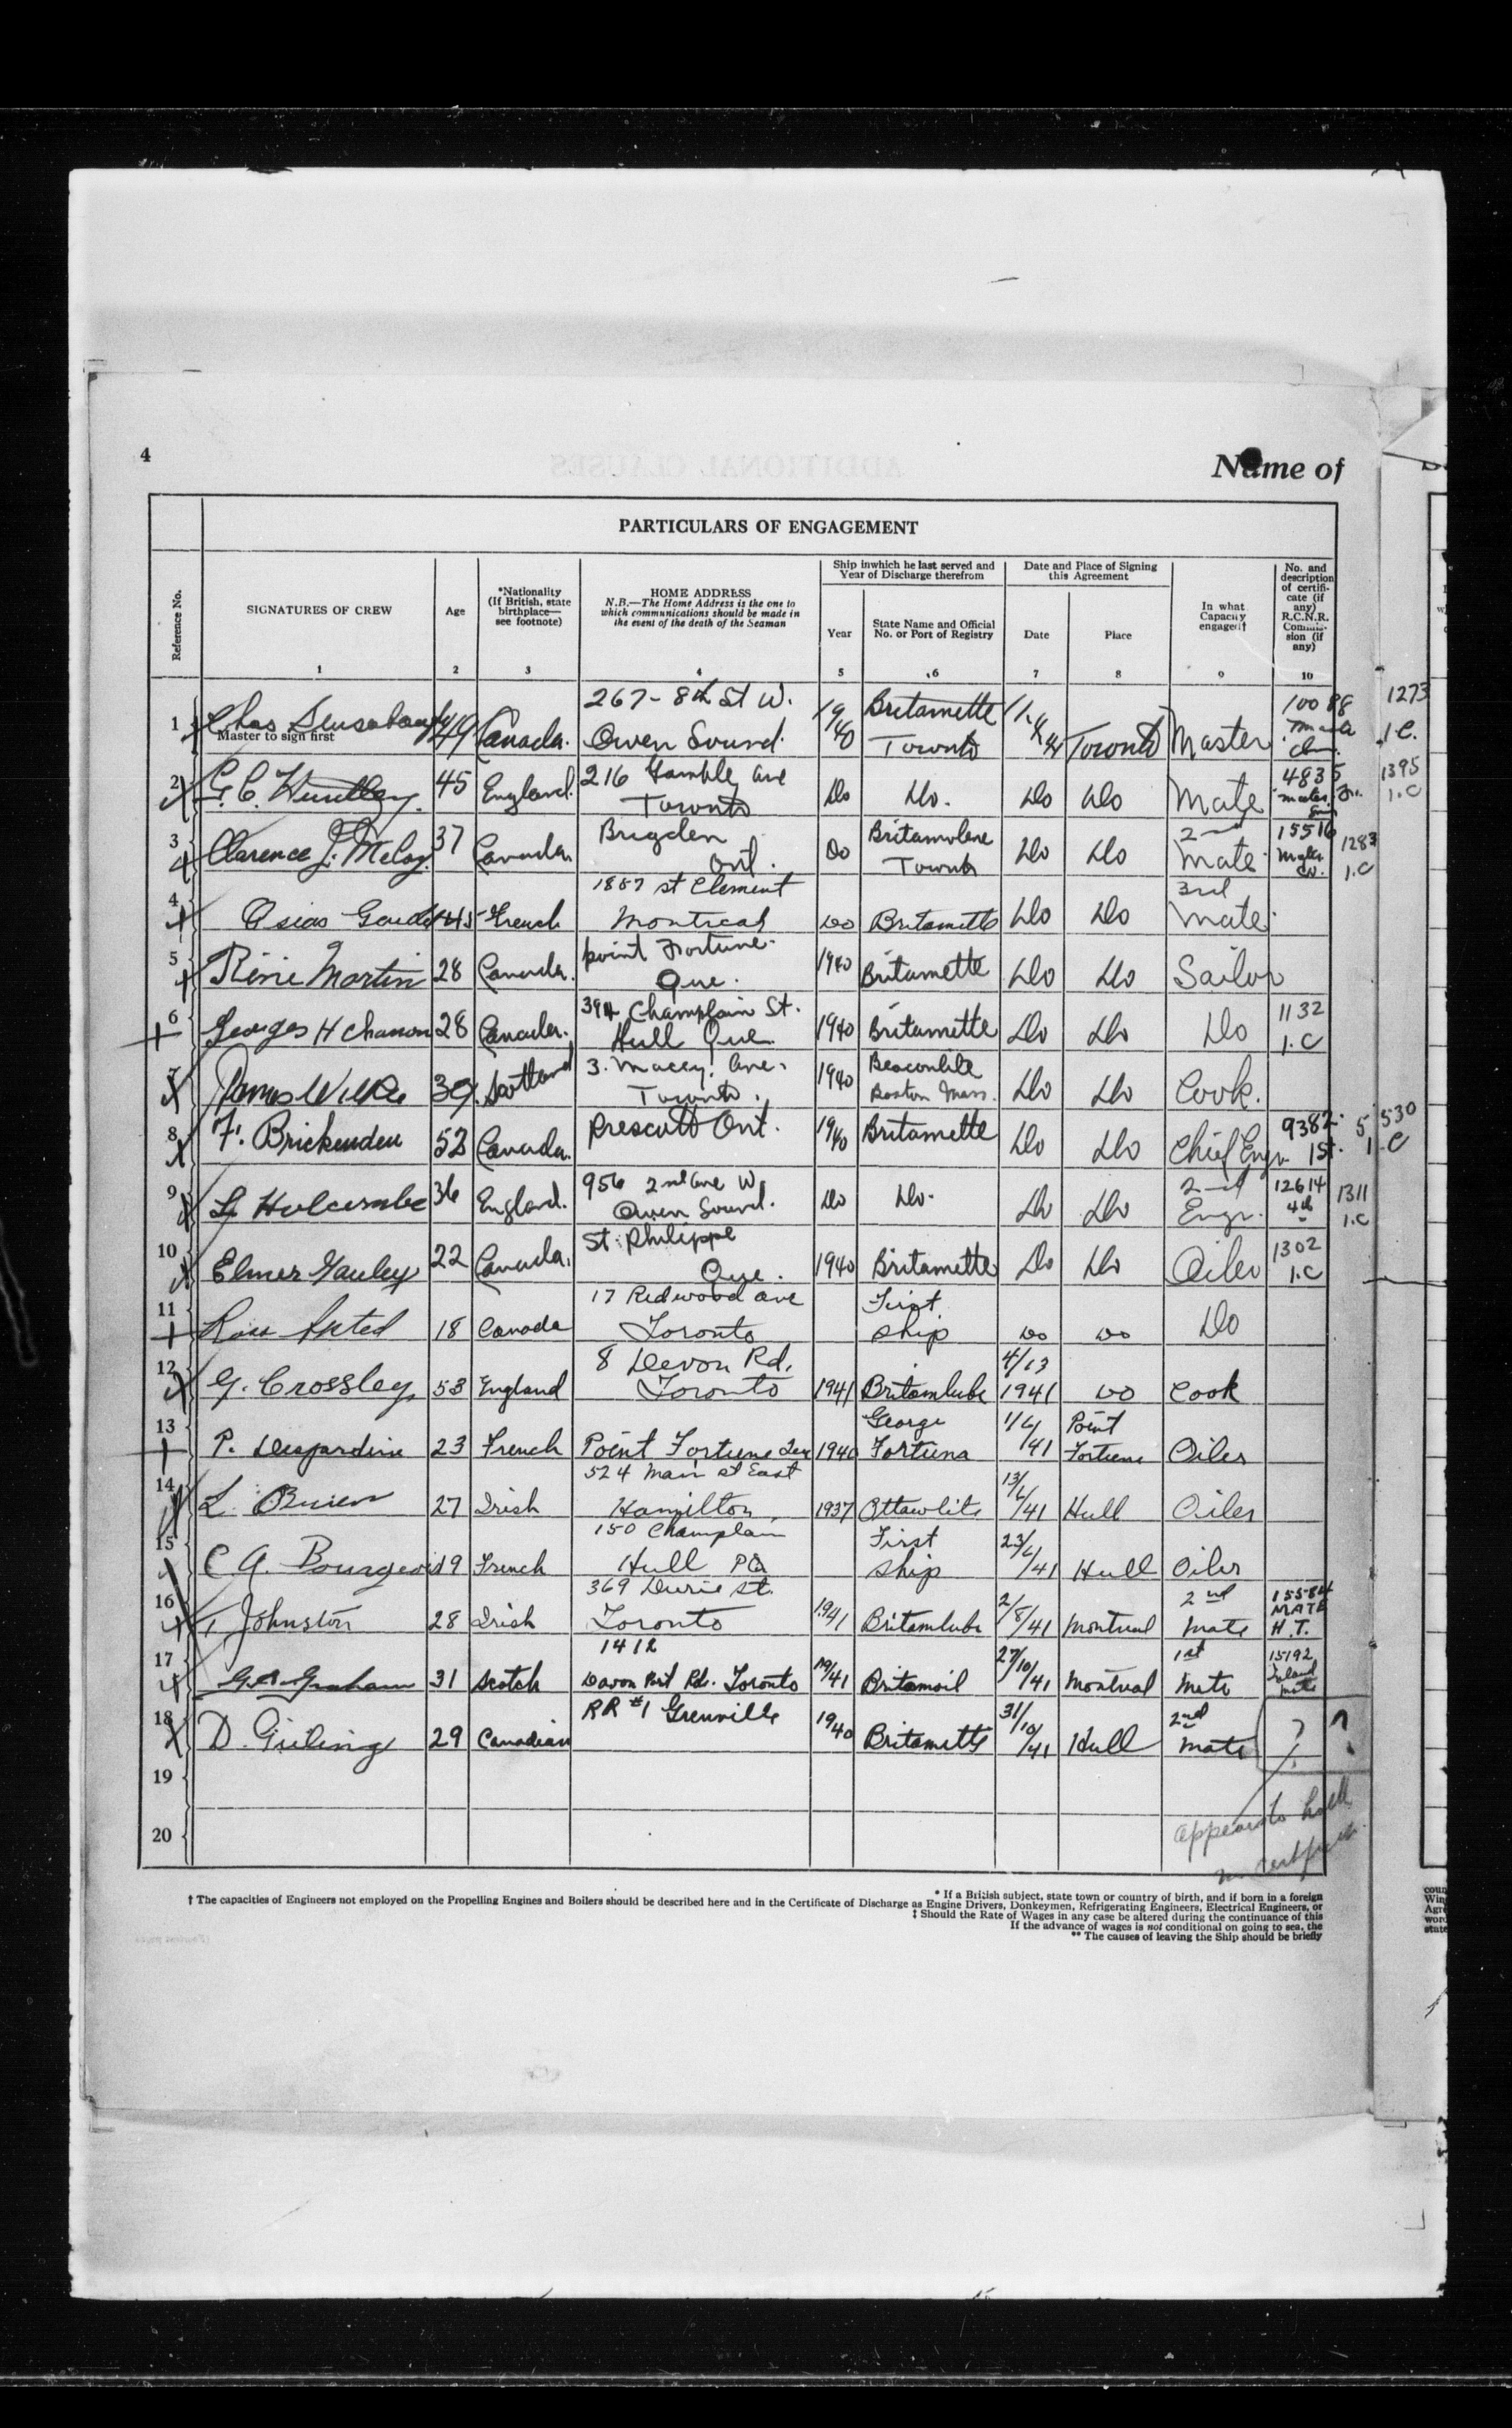 4
Name of
PARTICULARS OF ENGAGEMENT
Reference No.
SIGNATURES OF CREW
1
Age
2
*Nationality
(If British, state
birthplace—
see footnote)
3
HOME ADDRESS
N.B.—The Home Address is the one to
which communications should be made in
the event of the death of the Seaman
Ship inwhich he last served and
Year of Discharge therefrom
Year
5
State Name and Official
No. or Port of Registry
6
Date and Place of Signing
this Agreement
Date
7
Place
8
In what
Capacity
engaged†
9
No. and
description
of certifi-
cate (if
any)
R.C.N.R.
Commis-
sion (if
any)
10
267 - 8th St W. Britamette 100 88 1273
1 Chas 49 Canada. Owen Sound 19/40 Toronto Toronto Master 1 C.
Master to sign first
216 Gamble ave 4835 1395
2 G. C. Huntley. 45 England. Toronto Do Do. Do Do Mate 1.C
Brigden Britamolene 2nd 15516 1283
3 Clarence J. McCoy 37 Canada. Ont. Do Toronto Do Do Mate 1.C
1887 st Clement 3rd
4 Osias 45 French Montreal Do Britamette Do Do Mate.
point Fortune.
5 Rene Martin 28 Canada. Que. 1940 Britamette Do Do Sailor
394 Champlain St. 1132
6 Georges H Charron 28 Canada. Hull Que 1940 Britamette Do Do Do 1.C
3. Macey. Ave. Beaconlite
7 James Wilkie 39. Scotland Toronto. 1940 Boston Mass. Do Do Cook.
9382 5 530
8 F. Brickenden 52 Canada. Prescott Ont. 1940 Britamette Do Do Chief Engr 1st. 1.C
956 2nd Ave W. 2nd 12614 1311
9 L Holcombe 36 England. Owen Sound. Do Do. Do Do Engr. 4th 1.C
St. Philippe 1302
10 Elmer Gauley 22 Canada. Que. 1940 Britamette Do Do Oiler 1.C
17 Redwood ave First
11 Ross 18 Canada Toronto ship Do Do Do
8 Devon Rd. 4/13
12 G. Crossley 53 England Toronto 1941 Britamlube 1941 Do Cook
George 1/6 Point
13 P. Desjardine 23 French Point Fortune Que 1940 Fortuna /41 Fortune Oiler
524 Main st East 13/6
14 L. OBrien 27 Irish Hamilton 1937 Ottawlite /41 Hull Oiler
150 Champlain First 23/6
15 C A. Bourgeois 19 French Hull PQ ship /41 Hull Oiler
369 Durie St. 2nd 15584
16 T Johnston 28 Irish Toronto 1941 Britamlube 2/8/41 Montreal Mate MATE
H.T.
1412 27/10 1st 15192
17 G. A. Graham 31 Scotch Davon Port Rd. Toronto 19/41 Britamoil /41 Montreal Mate Inland
mate
RR #1 Grenville 31/10 2nd
18 D. 29 Canadian 1940 Britamette /41 Hull Mate ? ?
19
20
appears to hold
no certificate
* If a British subject, state town or country of birth, and if born in a foreign
† The capacities of Engineers not employed on the Propelling Engines and Boilers should be described here and in the Certificate of Discharge as Engine Drivers, Donkeymen, Refrigerating Engineers, Electrical Engineers, or
‡ Should the Rate of Wages in any case be altered during the continuance of this
If the advance of wages is not conditional on going to sea, the
** The causes of leaving the Ship should be briefly